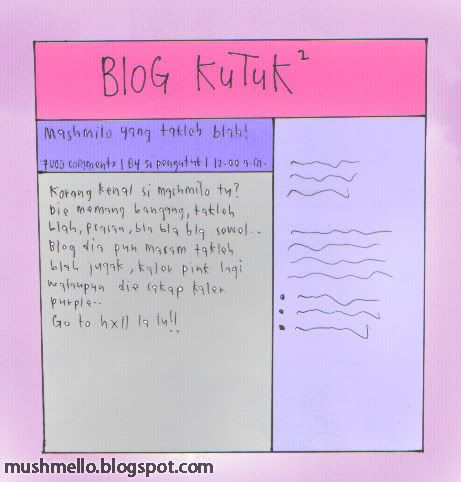 BLOG KUTUK²
Mashmilo yang takleh blah!
7000 comments | By si pengutuk | 12.00 a.m.
Korang kenal si mashmilo tu?
Die memang bangang, takleh
blah, prasan, bla bla bla sewol..
Blog dia pun macam takleh
blah jugak, kaler pink lagi
walaupun die cakap kaler
purple..
Go to hxll la lu!!
mushmello.blogspot.com